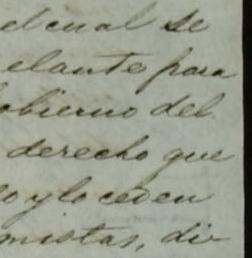 el cual se
elante para
obierno del
derecho que
o y lo ceden
mistas, di-